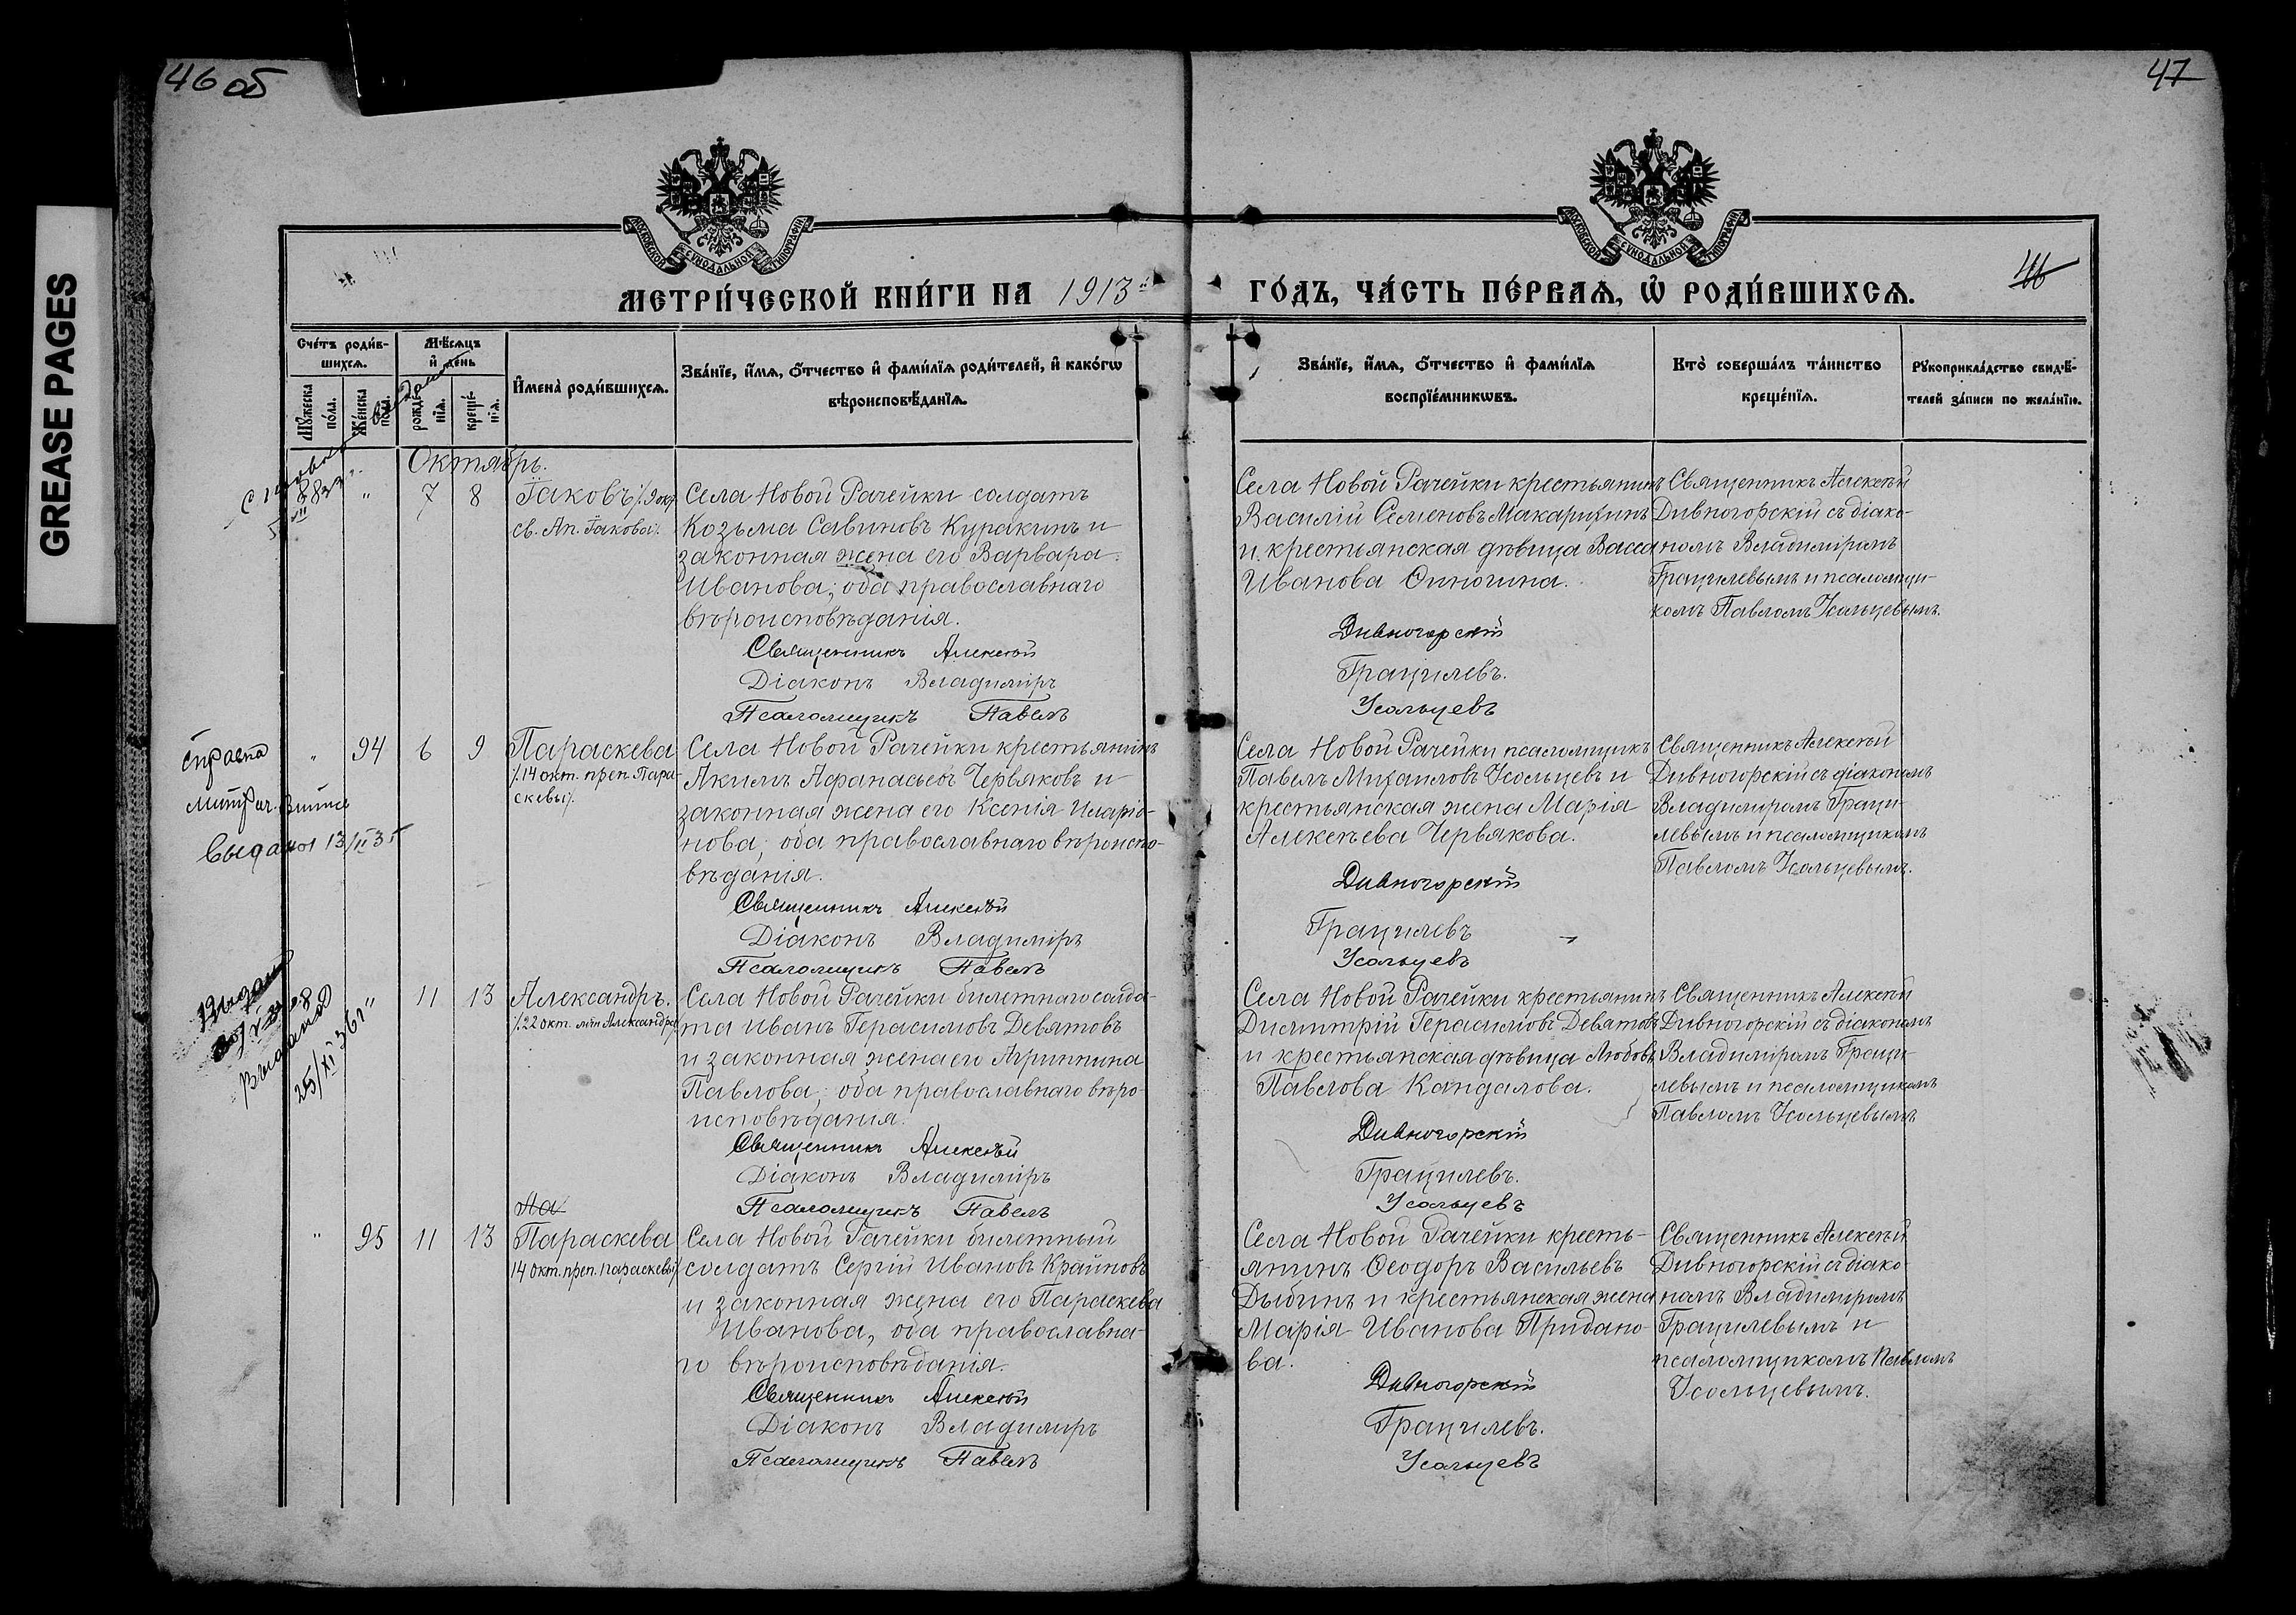 46 об
47
GREASE PAGES
МОСКОВСКОЙ СѴНОДАЛЬНОЙ ТИПОГРАФІИ
МОСКОВСКОЙ СѴНОДАЛЬНОЙ ТИПОГРАФІИ
46
МЕТРИ́ЧЕСКОЙ КНИ́ГИ НА 1913 ГО́ДЪ, ЧА́СТЬ ПЕ́РВАѦ, Ѡ҆ РОДИ́ВШИХСѦ.
Сче́тъ роди́в-
шихсѧ.
Мꙋ́жеска
по́ла.
Же́нска
по́ла.
Мѣ́сѧцъ
и҆ де́нь
рожде́-
нїѧ.
креще́-
нїѧ.
И҆мена̀ роди́вшихсѧ.
Зва́нїе, и҆́мѧ, ѻ҆́тчество и҆ фами́лїѧ роди́телей, и҆ како́гѡ
вѣроисповѣ́данїѧ.
Зва́нїе, и҆́мѧ, ѻ҆́тчество и҆ фами́лїѧ
воспрїе́мникѡвъ.
Кто̀ соверша́лъ та́инство
креще́нїѧ.
Рꙋкоприкла́дство свидѣ́-
телей за́писи по жела́нїю.
Октябрь.
" 7 8
Іаковъ /.9 окт.
св. Ап. Іакова/.
Села Новой Рачейки солдатъ
Козьма Савиновъ Куракинъ и
законная жена его Варвара
Иванова; оба православнаго
вѣроисповѣданія.
Священникъ Алексѣй
Діаконъ Владиміръ
Псаломщикъ Павелъ
Села Новой Рачейки крестьянинъ
Василій Семеновъ Макарихинъ
и крестьянская дѣвица Васса
Иванова Синогина.
Дивногорскій
Грацилевъ.
Усольцевъ
Священникъ Алексѣй
Дивногорскій съ діако-
номъ Владиміромъ
Грацилевымъ и псаломщи-
комъ Павломъ Усольцевымъ.
справка
выдана 13/II 35
" 94 6 9
Параскева
/.14 окт. преп. Пара-
скевы/.
Села Новой Рачейки крестьянинъ
Акимъ Афанасьевъ Червяковъ и
законная жена его Ксенія Иларіо-
нова; оба православнаго вѣроиспо-
вѣданія.
Священникъ Алексѣй
Діаконъ Владиміръ
Псаломщикъ Павелъ
Села Новой Рачейки псаломщикъ
Павелъ Михаиловъ Усольцевъ и
крестьянская жена Марія
Алексѣева Червякова.
Дивногорскій
Грацилевъ
Усольцевъ
Священникъ Алексѣй
Дивногорскій съ діакономъ
Владиміромъ Граци-
левымъ и псаломщикомъ
Павломъ Усольцевымъ.
Выдана
25/XI 36 г
" 11 13
Александръ.
/.22 окт. мч. Александра
Села Новой Рачейки билетнаго солда-
та Иванъ Герасимовъ Девятовъ
и законная жена его Агриппина
Павлова; оба православнаго вѣро-
исповѣданія.
Священникъ Алексѣй
Діаконъ Владиміръ
Псаломщикъ Павелъ
Села Новой Рачейки крестьянинъ
Димитрій Герасимовъ Девятовъ
и крестьянская дѣвица Любовь
Павлова Кандалова.
Дивногорскій
Грацилевъ.
Усольцевъ
Священникъ Алексѣй
Дивногорскій съ діакономъ
Владиміромъ Граци-
левымъ и псаломщикомъ
Павломъ Усольцевымъ
" 95 11 13
Параскева
14 окт. преп. Параскевы/.
Села Новой Рачейки билетный
солдатъ Сергій Ивановъ Крайновъ
и законная жена его Параскева
Иванова, оба православна-
го вѣроисповѣданія.
Священникъ Алексѣй
Діаконъ Владиміръ
Псаломщикъ Павелъ
Села Новой Рачейки кресть-
янинъ Ѳеодоръ Васильевъ
Дыбинъ и крестьянская жена
Марія Иванова Придано-
ва.
Дивногорскій
Грацилевъ.
Усольцевъ
Священникъ Алексѣй
Дивногорскій съ діако-
номъ Владиміромъ
Грацилевымъ и
псаломщикомъ Павломъ
Усольцевымъ.